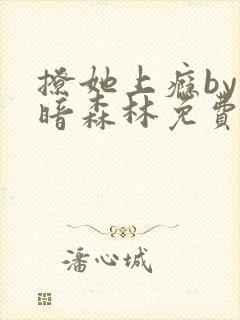 撩她上瘾by
暗森林免費
潘心城